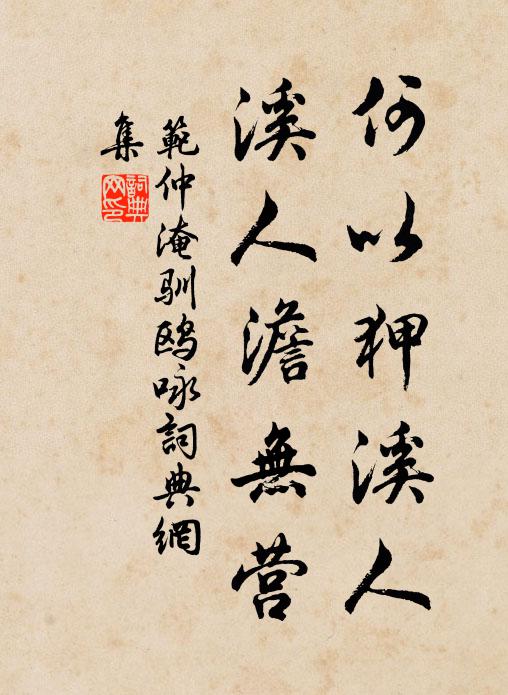 何以狎溪人
溪人澹無营
範仲淹馴鸥咏詞典網
集
詞典
网印